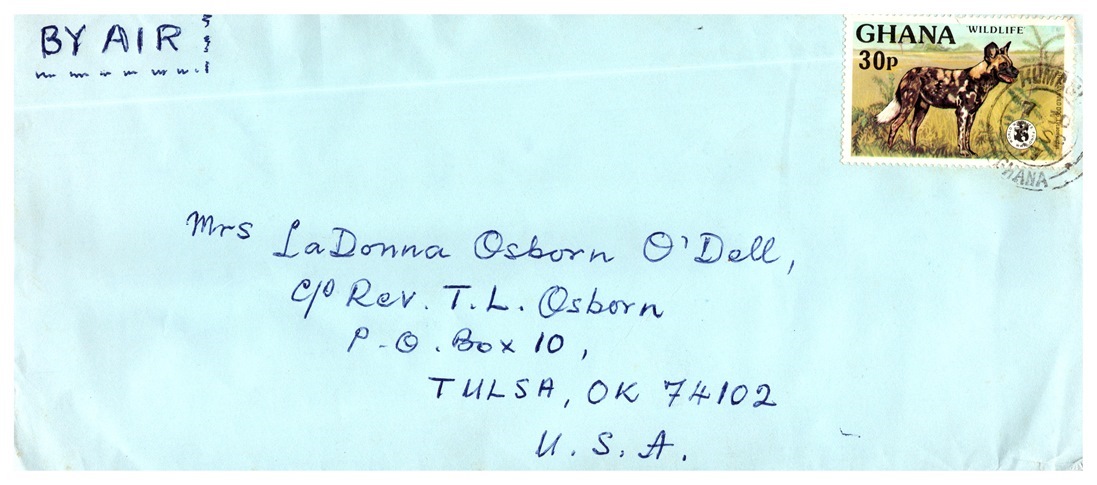 BY AIR
GHANA WILDLIFE
30p
GHANA
Mrs LaDonna Osborn O'Dell,
c/o Rev. T. L. Osborn
P.O. Box 10,
TULSA, OK 74102
U.S.A.